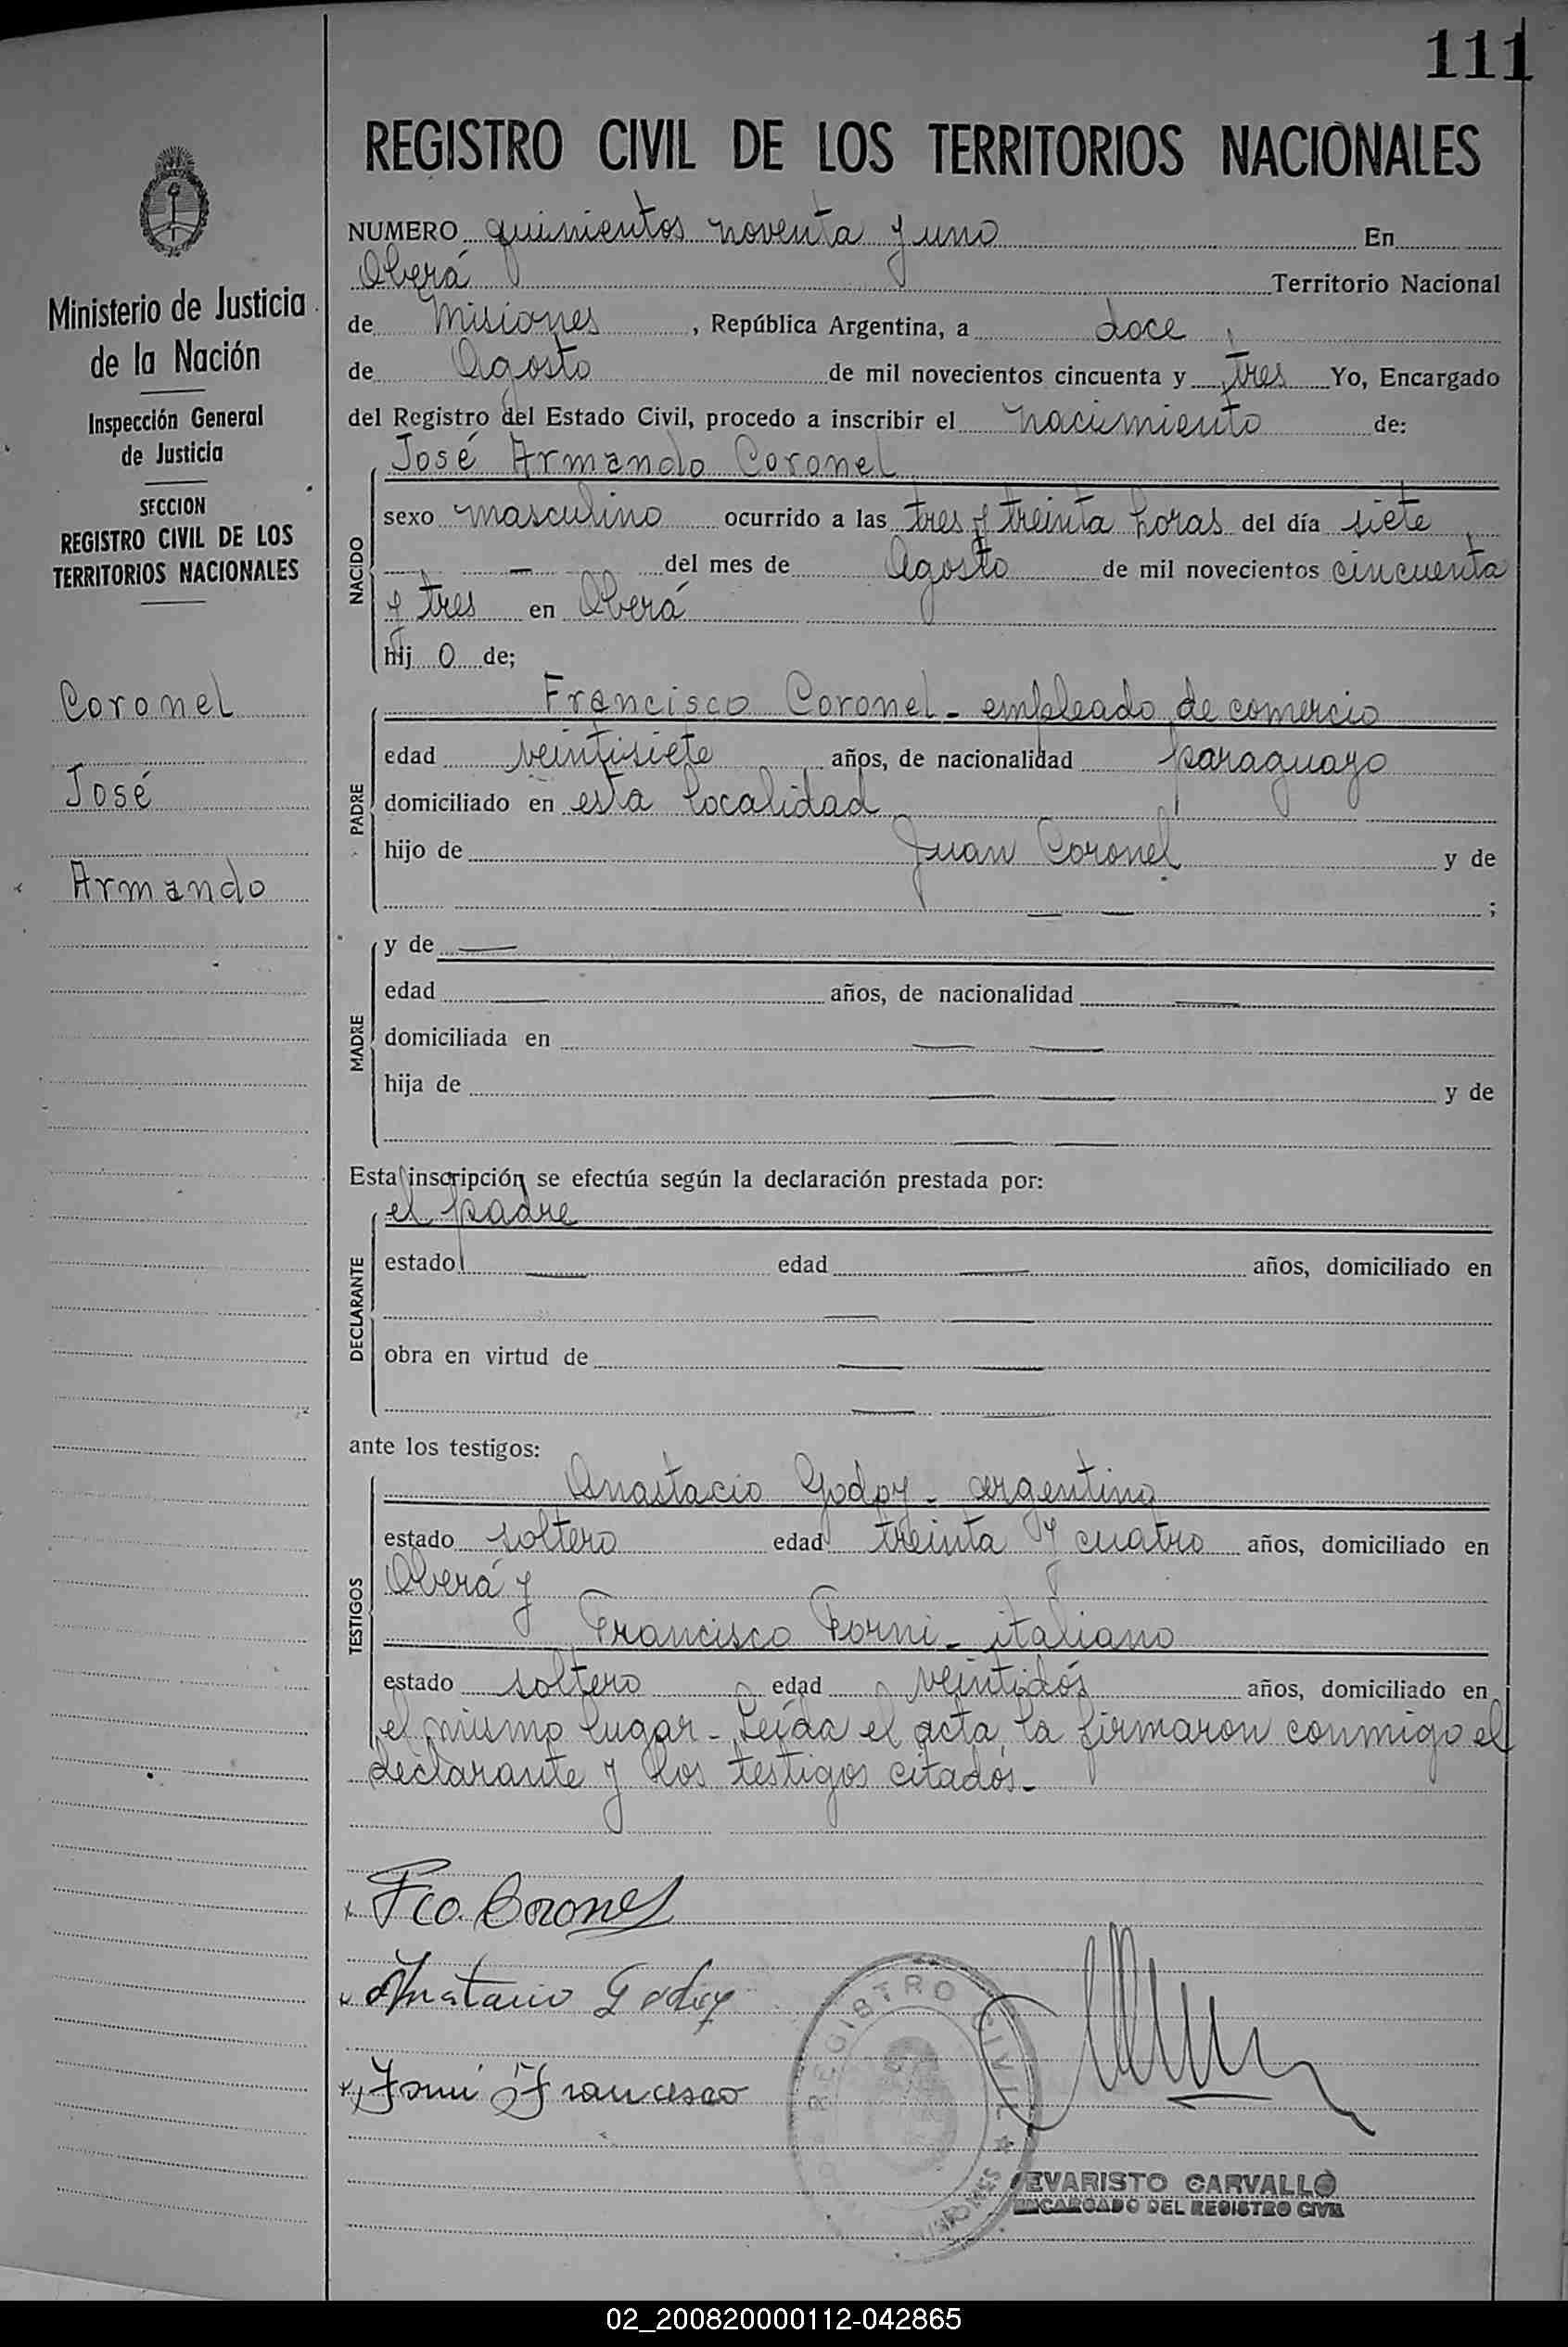 111
REGISTRO CIVIL DE LOS TERRITORIOS NACIONALES
Ministerio de Justicia
de la Nación
Inspección General
de Justicia
SECCION
REGISTRO CIVIL DE LOS
TERRITORIOS NACIONALES
Coronel
José
Armando
NUMERO quinientos noventa y uno En
Oberá Territorio Nacional
de Misiones, República Argentina, a doce
de Agosto de mil novecientos cincuenta y tres Yo, Encargado
del Registro del Estado Civil, procedo a inscribir el nacimiento de:
NACIDO
José Armando Coronel
sexo masculino ocurrido a las tres y treinta horas del día siete
— del mes de Agosto de mil novecientos cincuenta
y tres en Oberá
hij o de;
PADRE
Francisco Coronel - empleado de comercio
edad veintisiete años, de nacionalidad paraguayo
domiciliado en esta localidad
hijo de Juan Coronel y de
— — ;
MADRE
y de —
edad — años, de nacionalidad —
domiciliada en — —
hija de — — y de
— —
Esta inscripción se efectúa según la declaración prestada por:
DECLARANTE
el padre
estado — edad — años, domiciliado en
— —
obra en virtud de — —
— —
ante los testigos:
TESTIGOS
Anastacio Godoy - argentino
estado soltero edad treinta y cuatro años, domiciliado en
Oberá y
Francisco Forni - italiano
estado soltero edad veintidós años, domiciliado en
el mismo lugar - Leída el acta, la firmaron conmigo el
declarante y los testigos citados.-
Fco. Coronel
Anastacio Godoy
Forni Francesco
REGISTRO CIVIL
MISIONES
EVARISTO CARVALLO
ENCARGADO DEL REGISTRO CIVIL
02_200820000112-042865